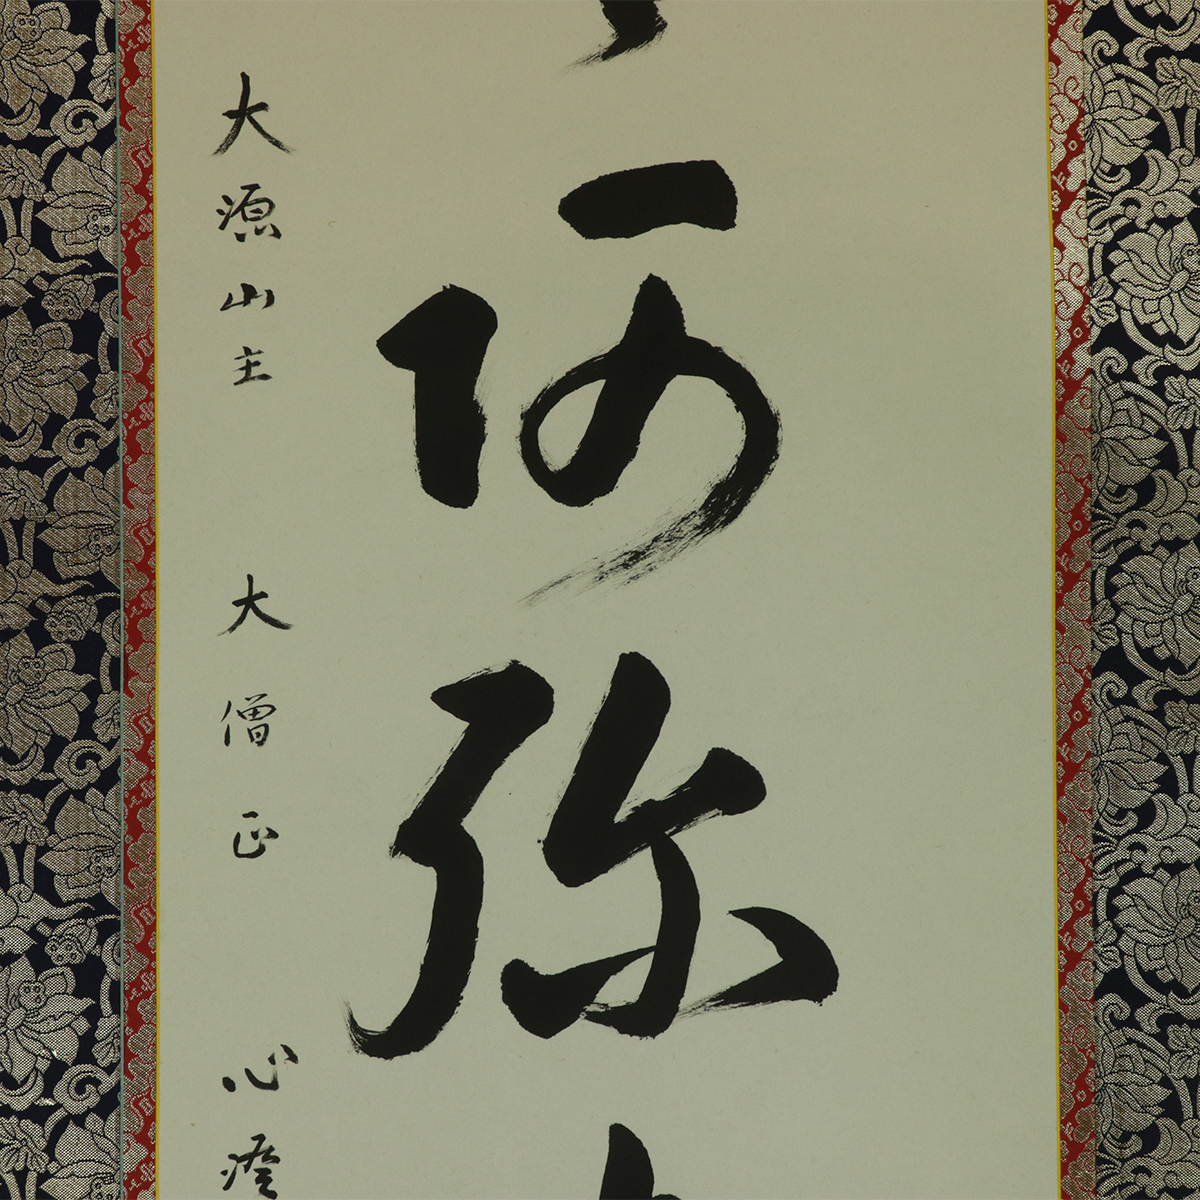 阿弥
大源山主 大僧正 心澄